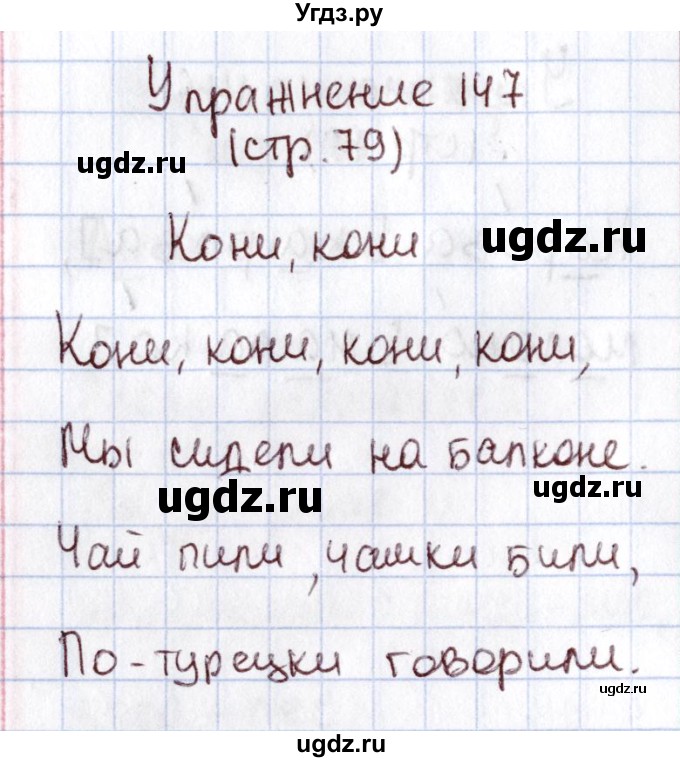 Угдз.ру
Упражнение 147
ugdz.ru
(стр. 79)
Кони, кони
ugdz.ru
Кони, кони, кони, кони,
Мы сидели на балконе.
ugdz.ru
ugdz.ru
Чай пили, чашки били,
По-турецки говорили.
ugdz.ru
ugdz.ru